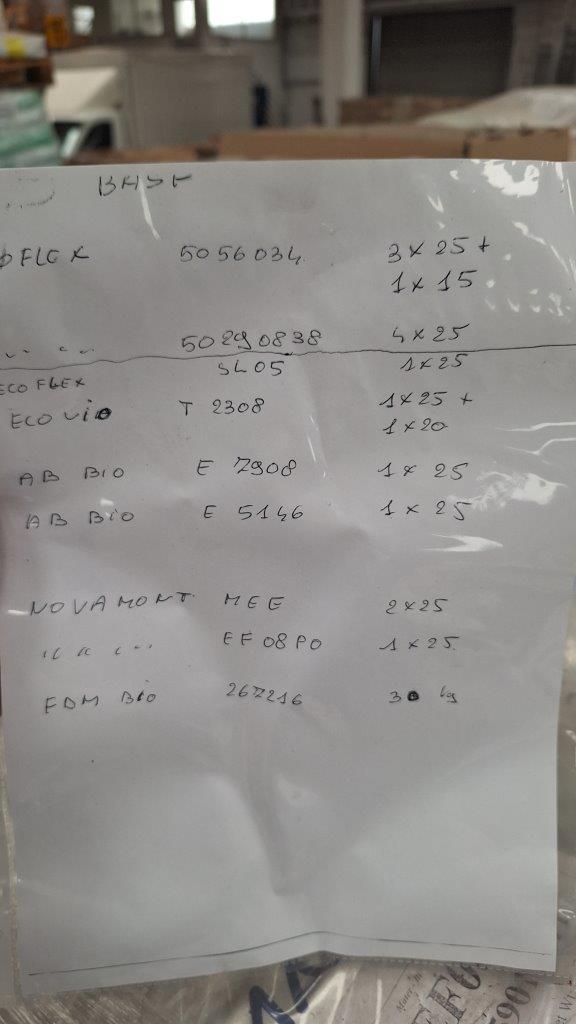 BASF
FLEX 5056034 3 x 25 +
1 x 15
50290838 4 x 25
SL05 1 x 25
ECOFLEX
ECOVIO T 2308 1 x 25 +
1 x 20
AB BIO E 7908 1 x 25
AB BIO E 5146 1 x 25
NOVAMONT MEE 2 x 25
" " " EF08P0 1 x 25
BIO 267216 30 kg